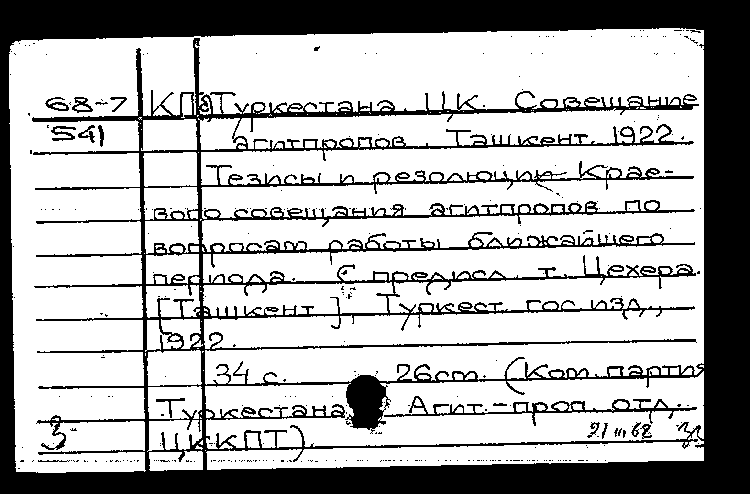 68-7 КП Туркестана. ЦК. Совещание
541 агитпропов. Ташкент. 1922.
Тезисы и резолюции Крае-
вого совещания агитпропов по
вопросам работы ближайшего
периода. С предисл. т. Цехера.
[Ташкент], Туркест. гос. изд.,
1922.
34 с. 26 cm. (Ком. партия
Туркестана. Агит.-проп. отд.
ЦК КПТ).
21 III 68